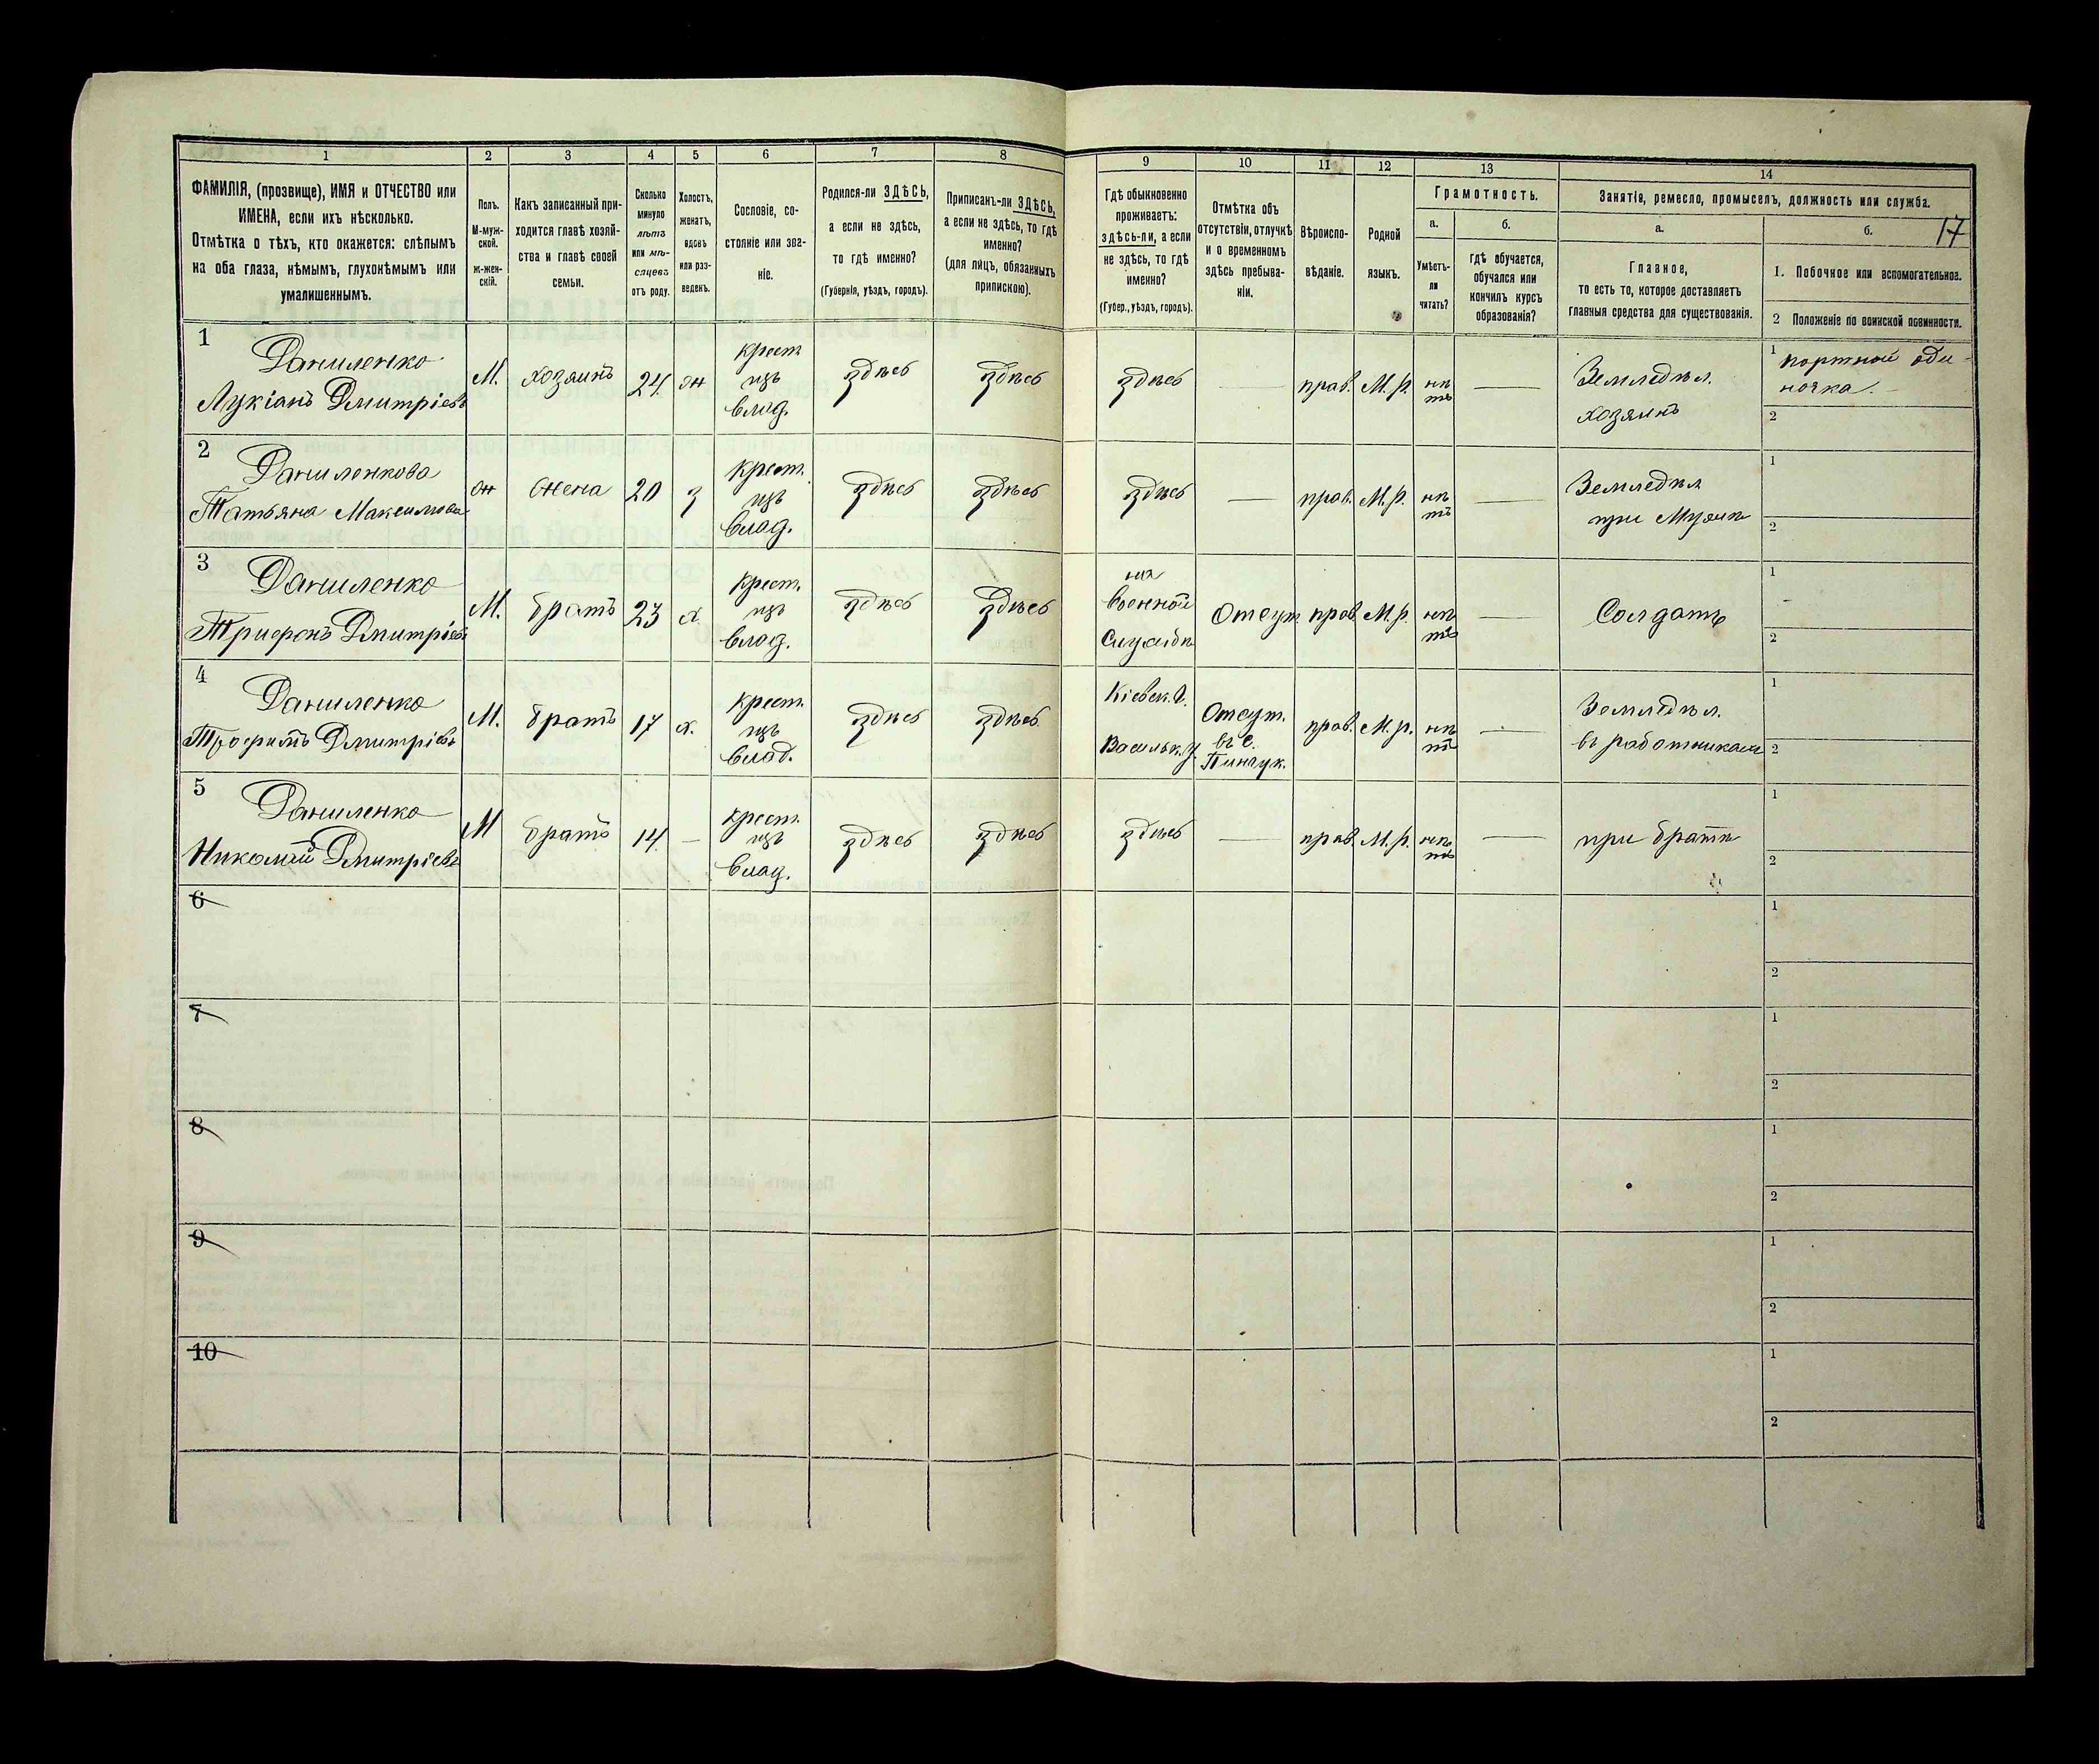 1 2 3 4 5 6 7 8 9 10 11 12 13 14
ФАМИЛІЯ, (прозвище), ИМЯ и ОТЧЕСТВО или
ИМЕНА, если ихъ нѣсколько.
Отмѣтка о тѣхъ, кто окажется: слѣпымъ
на оба глаза, нѣмымъ, глухонѣмымъ или
умалишеннымъ.
Полъ.
М-муж-
ской.
ж-жен-
скій.
Какъ записанный при-
ходится главѣ хозяй-
ства и главѣ своей
семьи.
Сколько
минуло
лѣтъ
или мѣ-
сяцевъ
отъ роду.
Холостъ,
женатъ,
вдовъ
или раз-
веденъ.
Сословіе, со-
стояніе или зва-
ніе.
Родился-ли ЗДѢСЬ,
а если не здѣсь,
то гдѣ именно?
(Губернія, уѣздъ, городъ).
Приписанъ-ли ЗДѢСЬ,
а если не здѣсь, то гдѣ
именно?
(для лицъ, обязанныхъ
припискою).
Гдѣ обыкновенно
проживаетъ:
здѣсь-ли, а если
не здѣсь, то гдѣ
именно?
(Губер., уѣздъ, городъ).
Отмѣтка объ
отсутствіи, отлучкѣ
и о временномъ
здѣсь пребыва-
ніи.
Вѣроиспо-
вѣданіе.
Родной
языкъ.
Грамотность.
а.
Умѣетъ-
ли
читать?
б.
гдѣ обучается,
обучался или
кончилъ курсъ
образованія?
Занятіе, ремесло, промыселъ, должность или служба.
а.
Главное,
то есть то, которое доставляетъ
главныя средства для существованія.
б. 17
1. Побочное или вспомогательное.
2 Положеніе по воинской повинности.
1
Даниленко
Лукіанъ Дмитріевъ
М.
хозяинъ
24
ж
крест.
изъ
влад.
здѣсь
здѣсь
здѣсь
—
прав.
М.р.
нѣ
тъ
—
Земледѣл.
хозяинъ
1 портной оди-
ночка.
2
2
Даниленкова
Татьяна Максимова
ж
жена
20
з
крест.
изъ
влад.
здѣсь
здѣсь
здѣсь
—
прав.
М.р.
нѣ
тъ
—
Земледѣл
при Мужѣ
1
2
3
Даниленко
Трифонъ Дмитріевъ
М.
братъ
23
х
крест.
изъ
влад.
здѣсь
здѣсь
на
военной
службѣ
Отсут.
прав.
М.р.
нѣ
тъ
—
Солдатъ
1
2
4
Даниленко
Трофимъ Дмитріевъ
М.
братъ
17
х.
крест.
изъ
влад.
здѣсь
здѣсь
Кіевск. г.
Васильк. у.
Отсут.
въ с.
Пинчук.
прав.
М.р.
нѣ
тъ
—
Земледѣл.
въ работникахъ
1
2
5
Даниленко
Николай Дмитріевъ
М
братъ
14
—
крест.
изъ
влад.
здѣсь
здѣсь
здѣсь
—
прав.
М.р.
нѣ
тъ
—
при братѣ
1
2
6
1
2
7
1
2
8
1
2
9
1
2
10
1
2